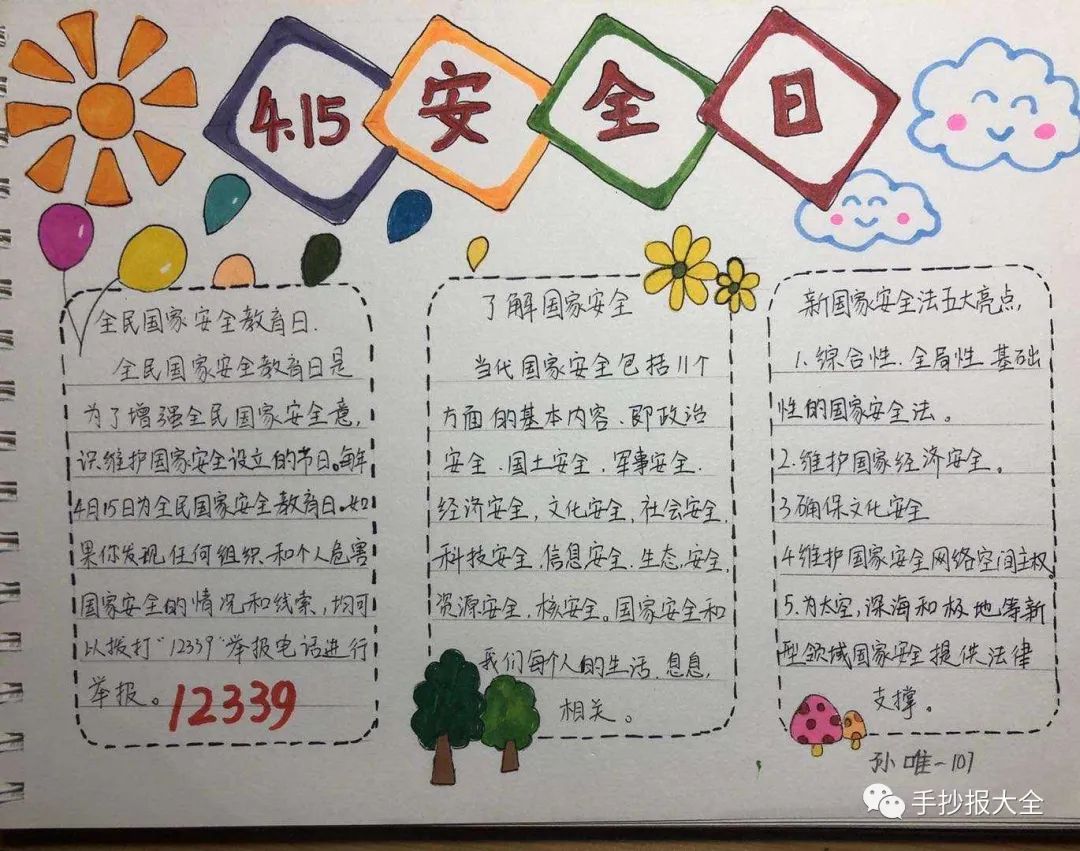 4.15安全日
全民国家安全教育日.
全民国家安全教育日是
为了增强全民国家安全意,
识维护国家安全设立的节日。每年
4月15日为全民国家安全教育日。如
果你发现任何组织和个人危害
国家安全的情况和线索,均可
以拨打"12339"举报电话进行
举报。
12339
了解国家安全
当代国家安全包括11个
方面的基本内容、即政治
安全、国土安全,军事安全.
经济安全,文化安全,社会安全,
科技安全.信息安全.生态,安全,
资源安全,核安全。国家安全和
我们每个人的生活息息,
相关。
新国家安全法五大亮点,
1.综合性.全局性.基础
性的国家安全法。
2.维护国家经济安全。
3确保文化安全
4维护国家安全网络空间主权。
5.为太空,深海和极地等新
型领域国家安全提供法律
支撑。
孙唯一107
手抄报大全